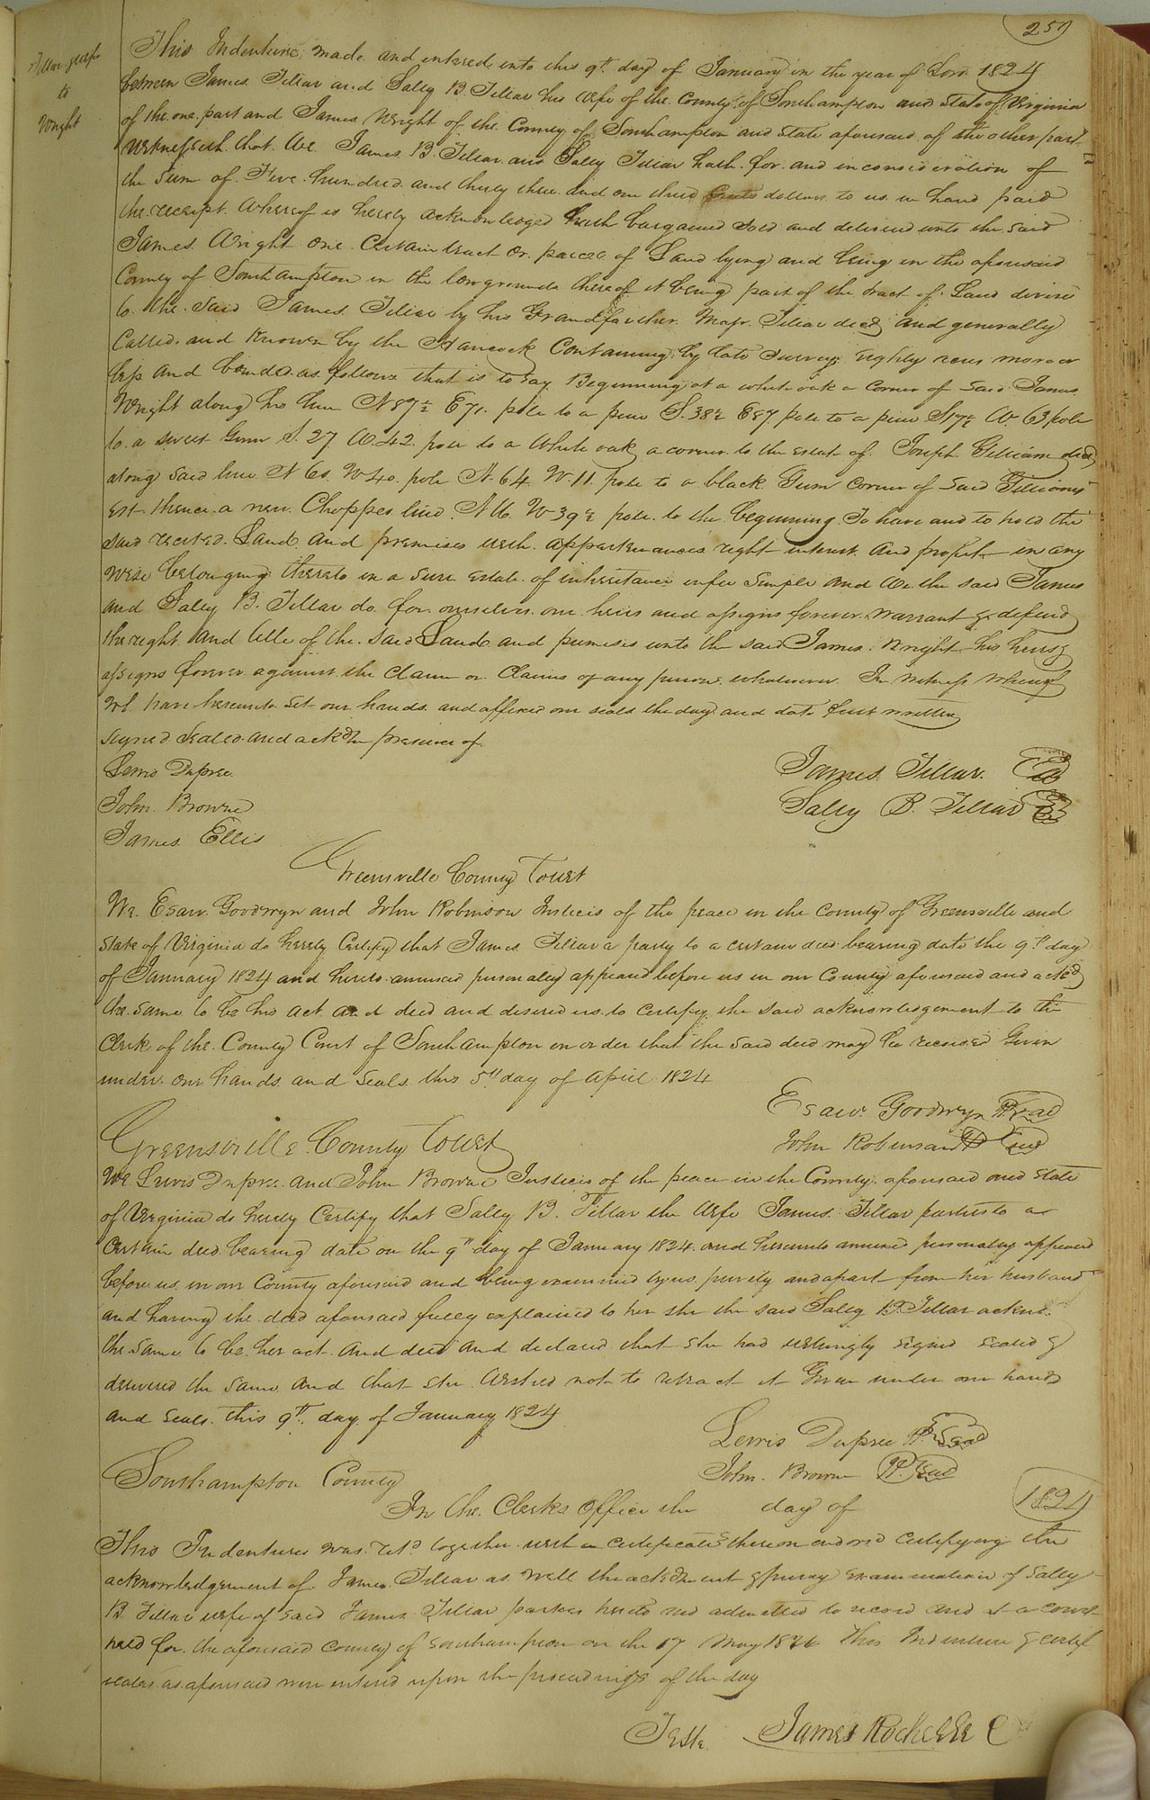 251
Tillar &
to
Wright
This Indenture made and entered into this 9th day of January in the year of Lord 1824
between James Tillar and Sally B Tillar his wife of the County of Southampton and State of Virginia
of the one part and James Wright of the County of Southampton and State aforesaid of the other part
witnesseth that We James B. Tillar and Sally Tillar hath for and in consideration of
the Sum of Five hundred and thirty three and one third dollars to us in hand paid
the receipt whereof is hereby acknowledged hath bargained sold and delivered unto the said
James Wright one Certain tract or parcel of Land lying and being in the aforesaid
County of Southampton in the lowgrounds thereof it being part of the tract of Land devised
to the said James Tillar by his Grandfather Majr. Tillar decd and generally
Called and Known by the Hancock Containing by late survey Eighty acres more or
less and bounded as follows that is to say Beginning at a white oak a corner of said James
Wright along his line N 87½ E 71. pole to a pine S. 38½ E 57 pole to a pine S 17½ W. 63 pole
to a sweet Gum S. 27 W. 42 pole to a White oak a corner to the Estate of Joseph Gilliam decd
along said line N 60 W 40 pole N. 64 W. 11 pole to a black Gum Corner of said Gilliams
Est thence a new Chopped line N 16 W 39½ pole to the beginning To have and to hold the
said recited Land and premises with appurtenances right interest and profit in any
wise belonging thereto in a sure estate of inheritance in fee simple and We the said James
and Sally B. Tillar do for ourselves our heirs and assigns forever warrant & defend
the right and title of the said Land and premises unto the said James Wright his heirs &
assigns forever against the claim or Claims of any person whatsoever In witness whereof
We have hereunto set our hands and affixed our seals the day and date first written
signed Sealed and ackd in presence of
Lewis Dupree
James Tillar. Seal
John Browne
Sally B. Tillar Seal
James Ellis
Greensville County Court
We Esaw Goodwyn and John Robinson Justices of the peace in the County of Greensville and
State of Virginia do hereby Certify that James Tillar a party to a certain deed bearing date the 9th day
of January 1824 and hereto annexed personally appeared before us in our County aforesaid and ackd
the same to be his act and deed and desired us to certify the said acknowledgement to the
Clerk of the County Court of Southampton in order that the said deed may be recorded Given
under our hands and Seals this 5th day of April 1824
Esaw Goodwyn Seal
John Robinson Seal
Greensville County Court
We Lewis Dupree and John Browne Justices of the peace in the County aforesaid and State
of Virginia do hereby Certify that Sally B. Tillar the wife James Tillar parties to a
Certain deed bearing date on the 9th day of January 1824 and hereunto annexed personally appeared
before us in our County aforesaid and being examined by us privily and apart from her husband
and having the deed aforesaid fully explained to her she the said Sally B Tillar acknd.
the same to be her act and deed and declared that she had willingly signed sealed &
delivered the same and that she wished not to retract it Given under our hands
and seals this 9th day of January 1824
Lewis Dupree Seal
John Browne Seal
Southampton County
In the Clerks Office the day of 1824
This Indenture was retd together with a certificates thereon endorsed Certifying the
acknowledgement of James Tillar as well the ackdment & privy examination of Sally
B. Tillar wife of said James Tillar parties hereto and admitted to record and at a Court
held for the aforesaid County of Southampton on the 17 May 1826 this Indenture & certif
icates as aforesaid were entered upon the proceedings of the day
Teste James Rochelle C